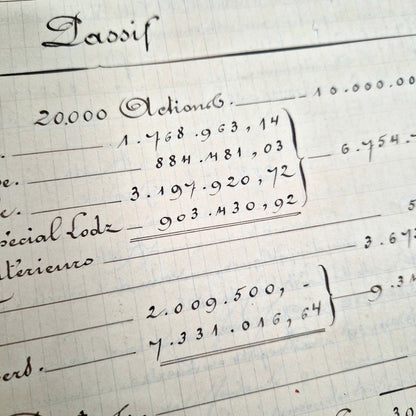 Passif
20.000 Actions. 10.000.00
1.768.963,14
884.481,03
3.197.920,72
6.754.
pécial Lodz 903.430,92
térieurs 5
3.673
2.009.500,-
9.34
ers. 7.331.016,64